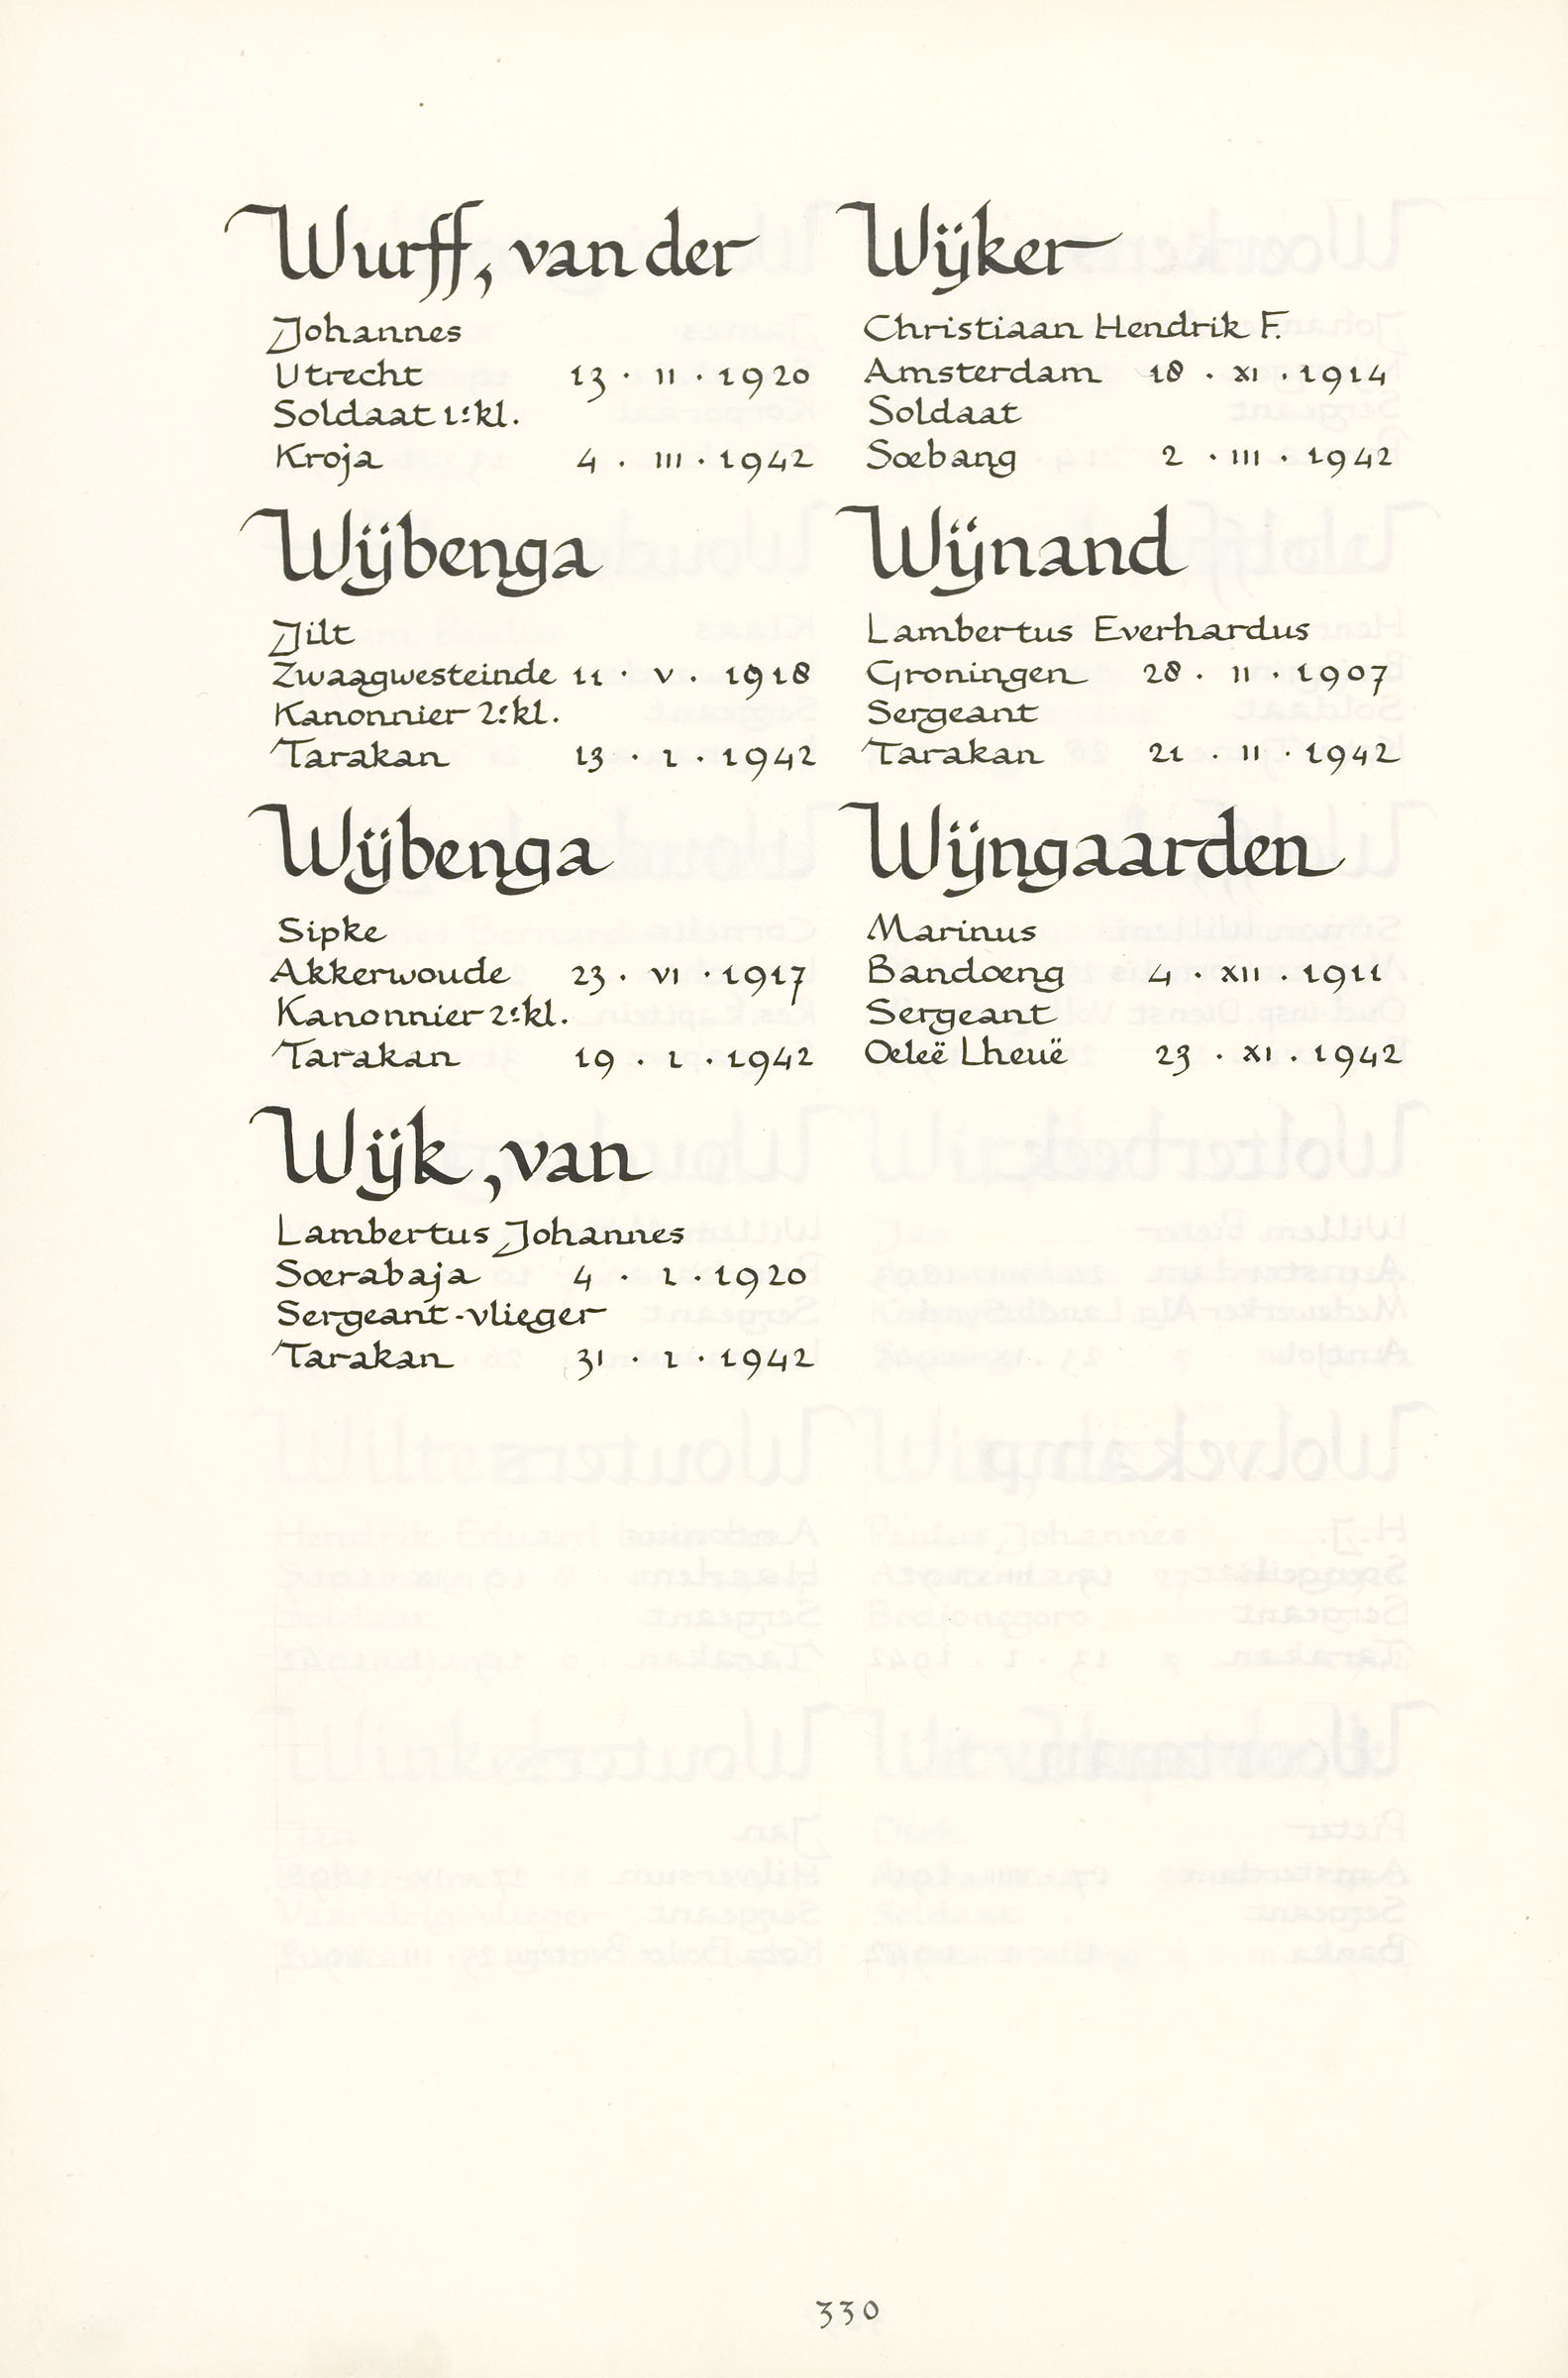 Wurff, van der
Johannes
Utrecht 13 · II · 1920
Soldaat 1e kl.
Kroja 4 · III · 1942
Wijbenga
Jilt
Zwaagwesteinde 11 · V · 1918
Kanonnier 2e kl.
Tarakan 13 · I · 1942
Wijbenga
Sipke
Akkerwoude 23 · VI · 1917
Kanonnier 2e kl.
Tarakan 19 · I · 1942
Wijk, van
Lambertus Johannes
Soerabaja 4 · I · 1920
Sergeant-vlieger
Tarakan 31 · I · 1942
Wijker
Christiaan Hendrik F.
Amsterdam 18 · XI · 1914
Soldaat
Soebang 2 · III · 1942
Wijnand
Lambertus Everhardus
Groningen 28 · II · 1907
Sergeant
Tarakan 21 · II · 1942
Wijngaarden
Marinus
Bandoeng 4 · XII · 1911
Sergeant
Oeleë Lheuë 23 · XI · 1942
330